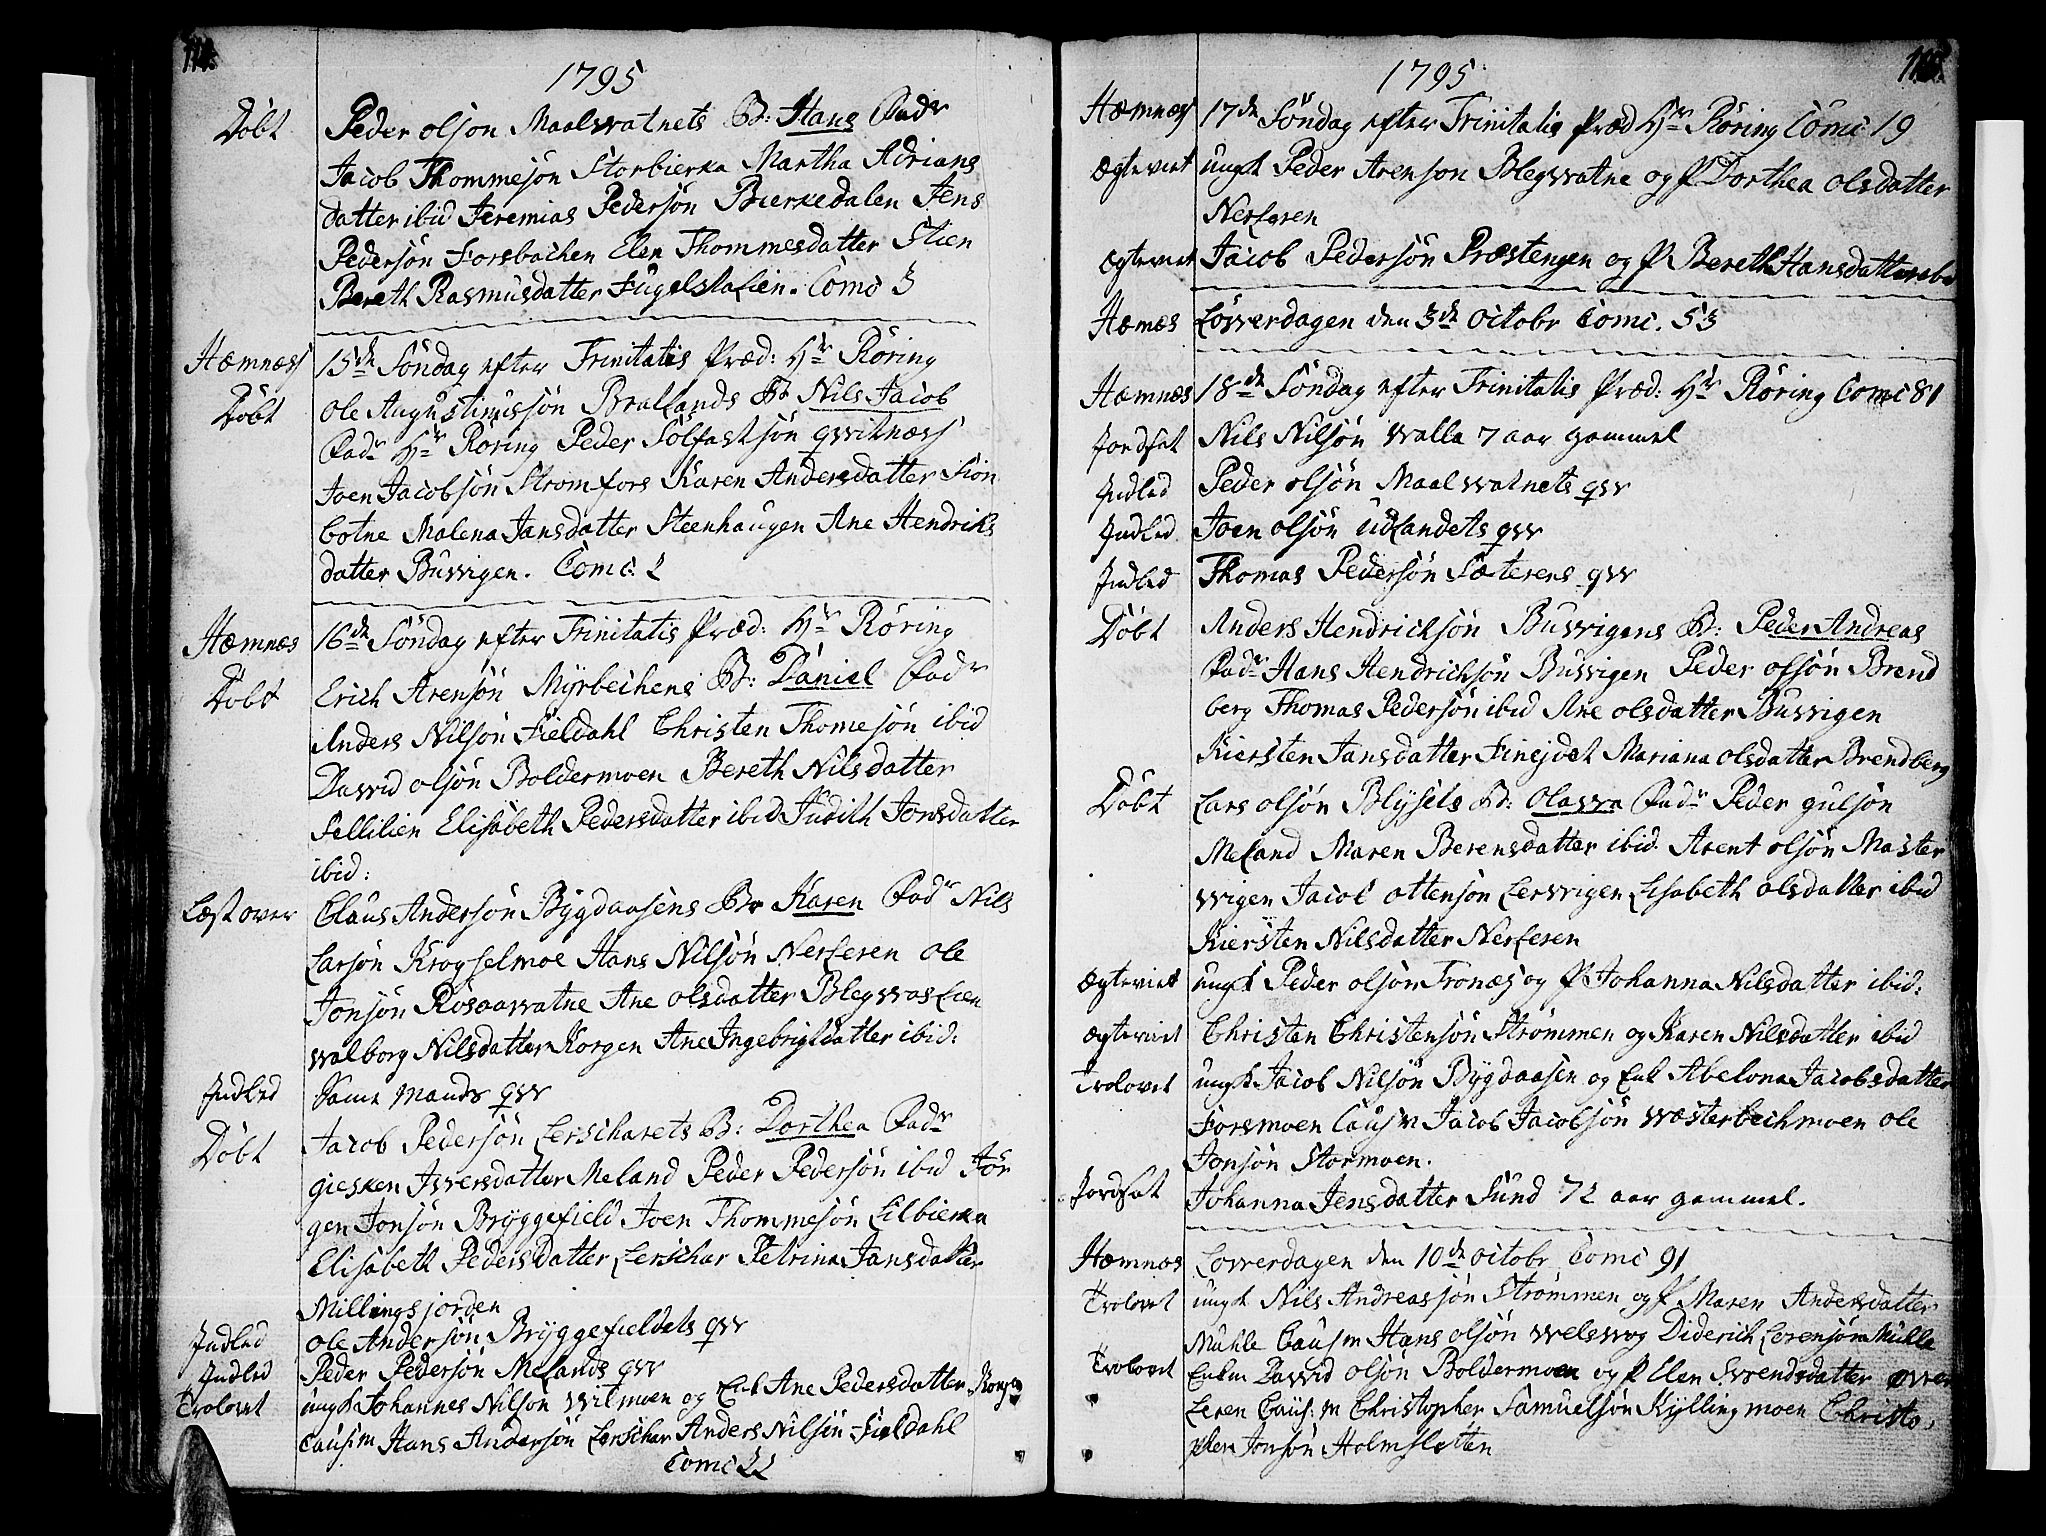 114.
1795
Döbt Peder olsön Maalwatnets B: Hans Fadr
Jacob Thommesön Storbierka Martha Adrians
datter ibid Jeremias Pedersön Bierkedalen Jens
Pedersön Forsbachen Elen Thommesdatter Stien
Bereth Rasmusdatter Fugelstalien. Comc 3
Hæmnæs 15de Söndag efter Trinitatis Præd: Hr Röring
Döbt Ole Augustinusjön Brallands B: Nils Jacob
Fadr Hr Röring Peder Solfastsjön qwitnæss
Joen Jacobsjön Stromfors Karen Andersdatter Sion
botne Malena Jansdatter Steenhaugen Ane Hendriks
datter Buswigen. Comc: 2
Hæmnæs 16de Söndag efter Trinitatis Præd: Hr Röring
Döbt Erich Arensjön Myrbechens B: Daniel Fadr
Anders Nilsön Fieldahl Christen Thomesjön ibid
Dawid olsjön Boldermoen Bereth Nilsdatter
Sellilien Elisabeth Pedersdatter ibid Judith Jonsdatter
ibid:
Læst over Claus Andersön Bygdaasens B: Karen Fadr Nils
Larsjön Krogselmoe Hans Nilsjön Nerleren Ole
Jonsjön Rösaawatne Ane olsdatter Blegwaslien
walborg Nilsdatter Korgen Ane Ingebrigtdatter ibid:
Indled Same Mands qw
Döbt Jacob Pedersjön Lerscharets B: Dorthea Fadr
giesken Iwersdatter Meland Peder Pedersjön ibid Jör
gen Jonsjön Bryggefield Joen Thommesjön Lilbierka
Elisabeth Pedersdatter Lerschar Petrina Jansdatter
Millingsjorden
Indled Ole Andersjön Bryggefieldets qw
Indled Peder Pedersjön Melands qw
Trolovet ungk Johannes Nilson Witmoen og Enk Ane Pedersdatter Korgen
Causm Hans Andersjön Lerschar Anders Nilsjön Fieldahl
Comc 22
115.
1795
Hæmnæs 17de Söndag efter Trinitatis Præd Hr Röring Comc 19
Ægteviet ungk Peder Arenson Blegwatne og P Dorthea olsdatter
Nerleren
Ægteviet Jacob Pedersjön Præstengen og P Bereth Hansdatter
Hæmes Löwerdagen den 3de octobr Comc. 53
Hæmnæs 18de Söndag efter Trinitatis Præd: Hr Röring Comc 81
Jordsat Nils Nilsjön walla 7 aar gammel
Indled Peder olsjön Maalwatnets qw
Indled Joen olsjön Udlandets qw
Indled Thomas Pedersjön Sæterens qw
Döbt Anders Hendricksjön Buswigens B: Peder Andreas
Fadr Hans Hendricksjön Buswigen Peder olsjön Brend
berg Thomas Pedersjön ibid Ane olsdatter Buswigen
Kiersten Jansdatter Finejdet Mariana olsdatter Brendberg
Döbt Lars olsjön Blysets B: Olawa Fadr Peder gulsjön
Meland Maren Berensdatter ibid Arent olsjön Master
wigen Jacob ottensjon Lerwigen Lisabeth olsdatter ibid
Kiersten Nilsdatter Nerleren
Ægteviet ungk Peder olsjön Tronæs og P Johanna Nilsdatter ibid:
Ægteviet Christen Christensjön Strömmen og Karen Nilsdatter ibid
Trolovet ungk Jacob Nilsjön Bygdaasen og Enk Abelona Jacobsdatter
Forsmoen Causm Jacob Jacobsjön Wæsterbeckmoen Ole
Jonsjön Stormoen.
Jordsat Johanna Jensdatter Sund 72 aar gammel.
Hæmnæs Lowerdagen den 10de octobr Comc 91
Trolovet ungk Nils Andreasjön Strömmen og P Maren Andersdatter
Muhle Causm Hans olsjön Welswog Diderich Lorensjön Mulle
Trolovet Enkm Dawid olsjön Boldermoen og P Elen Swendsdatter Over
Leren Caus:m Christopher Samuelsjön Kyllingmoen Christo
pher Jonsjön Holmsletten